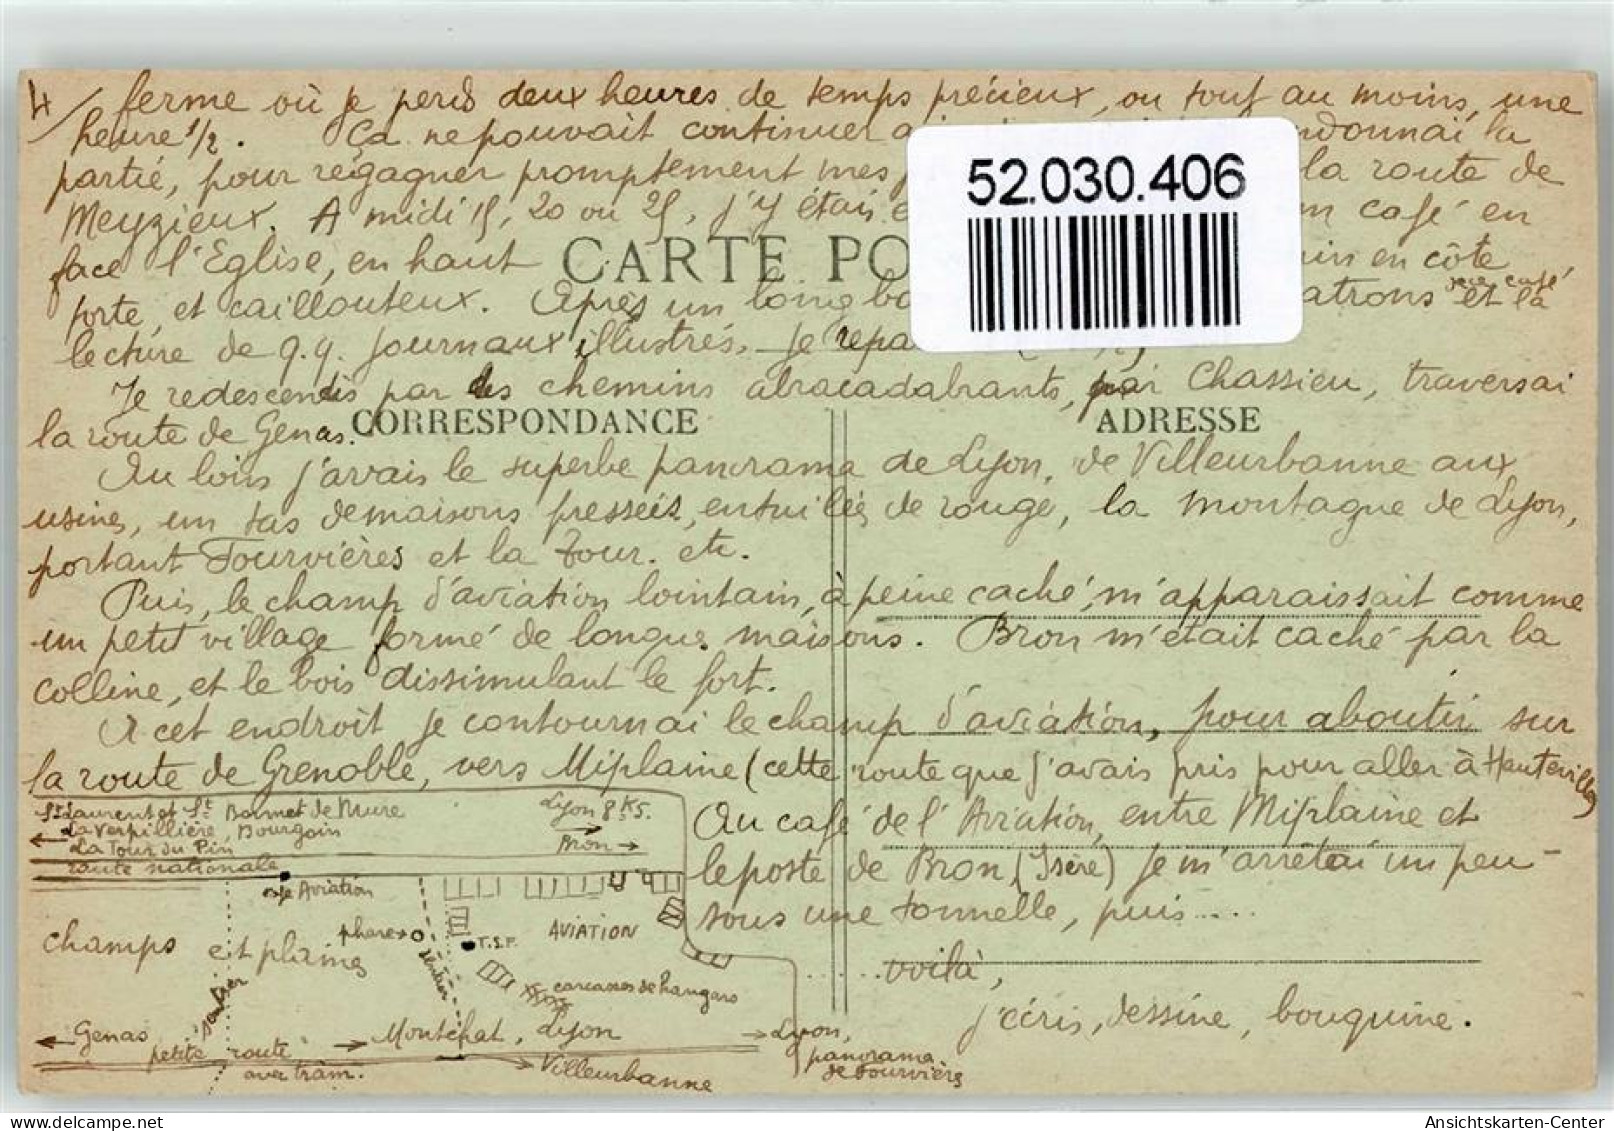 4/ ferme où je perds deux heures de temps précieux, ou tout au moins, une
heure 1/2. Ça ne pouvait continuer donnai la
partie, pour regagner promptement mes la route de
Meyzieux. A midi 15, 20 ou 25, j'y étais café en
face l'Eglise, en haut en côte
CARTE PO
forte, et caillouteux. Après un long atrons et la
lecture de q.q. journaux illustrés, je repa
52.030.406
Je redescendis par des chemins abracadabrants, par Chassieu, traversai
la route de Genas.
CORRESPONDANCE
ADRESSE
Au loin j'avais le superbe panorama de Lyon, de Villeurbanne aux
usines, un tas de maisons pressées, entuilées de rouge, la montagne de Lyon,
portant Fourvières et la Tour. etc.
Puis, le champ d'aviation lointain, à peine caché, m'apparaissait comme
un petit village formé de longues maisons. Bron m'était caché par la
colline, et le bois dissimulant le fort.
A cet endroit je contournai le champ d'aviation, pour aboutir sur
la route de Grenoble, vers Miplaine (cette route que j'avais pris pour aller à Hauteville)
Au café de l'Aviation, entre Miplaine et
le poste de Bron (Isère) je m'arrêtai un peu
sous une tonnelle, puis.....
...... voilà,
j'écris, dessine, bouquine.
St Laurent et St Bonnet de Mure
La Verpillière, Bourgoin
La Tour du Pin
route nationale
Lyon 8 Ks.
Bron →
café Aviation
champs et plaines
phare →
T.S.F.
AVIATION
sentier
sentier
carcasses de hangars
← Genas
petite route
avec tram.
→ Montchat, Lyon
→ Villeurbanne
→ Lyon,
panorama
de Fourvière
Ansichtskarten-Center